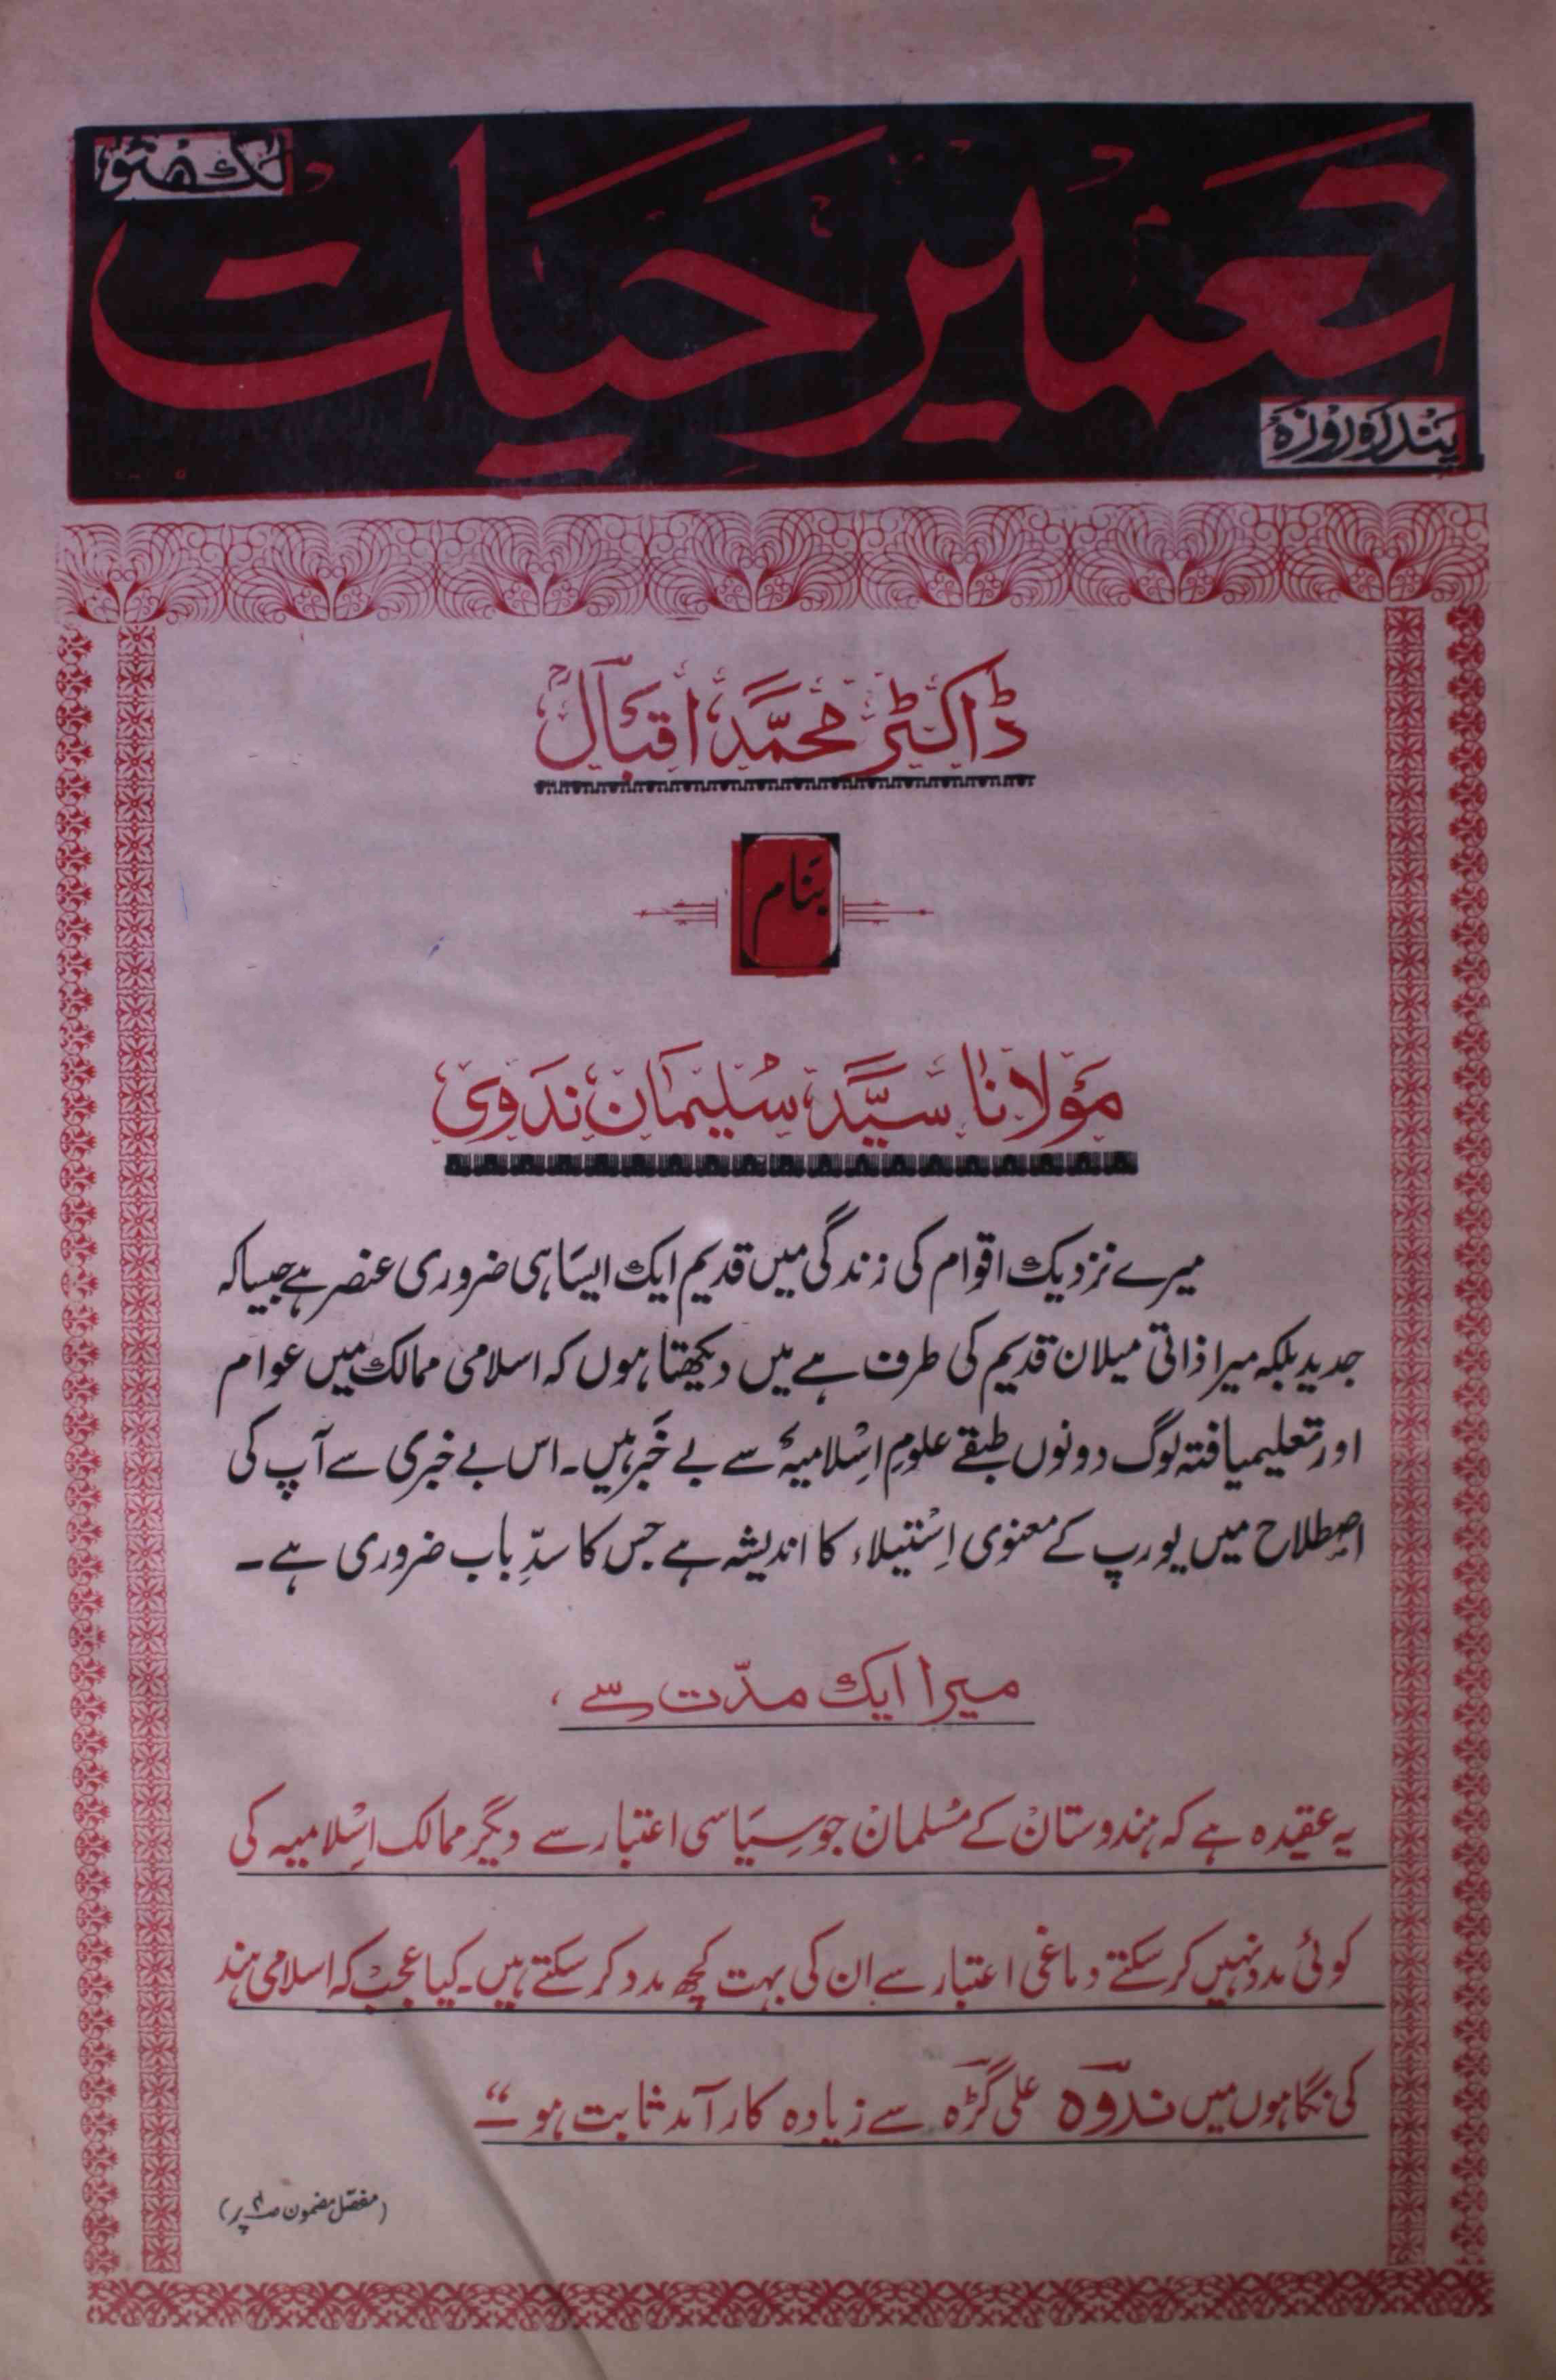 لکھنؤ
تعمیر حیات
پندرہ روزہ
ڈاکٹر محمد اقبالؒ
بنام
مولانا سیّد سلیمان ندوی
میرے نزدیک اقوام کی زندگی میں قدیم ایک ایسا ہی ضروری عنصر ہے جیسا کہ
جدید بلکہ میرا ذاتی میلان قدیم کی طرف ہے میں دیکھتا ہوں کہ اسلامی ممالک میں عوام
اور تعلیمیافتہ لوگ دونوں طبقے علومِ اسلامیہ سے بے خبر ہیں۔ اس بے خبری سے آپ کی
اصطلاح میں یورپ کے معنوی اِستیلاء کا اندیشہ ہے جس کا سدِّ باب ضروری ہے۔
میرا ایک مدّت سے،
یہ عقیدہ ہے کہ ہندوستان کے مسلمان جو سیاسی اعتبار سے دیگر ممالک اسلامیہ کی
کوئی مدد نہیں کر سکتے دماغی اعتبار سے ان کی بہت کچھ مدد کر سکتے ہیں۔ کیا عجب کہ اسلامی ہند
کی نگاہوں میں ندوہ علی گڑہ سے زیادہ کار آمد ثابت ہو“
(مفصل مضمون ص پر)